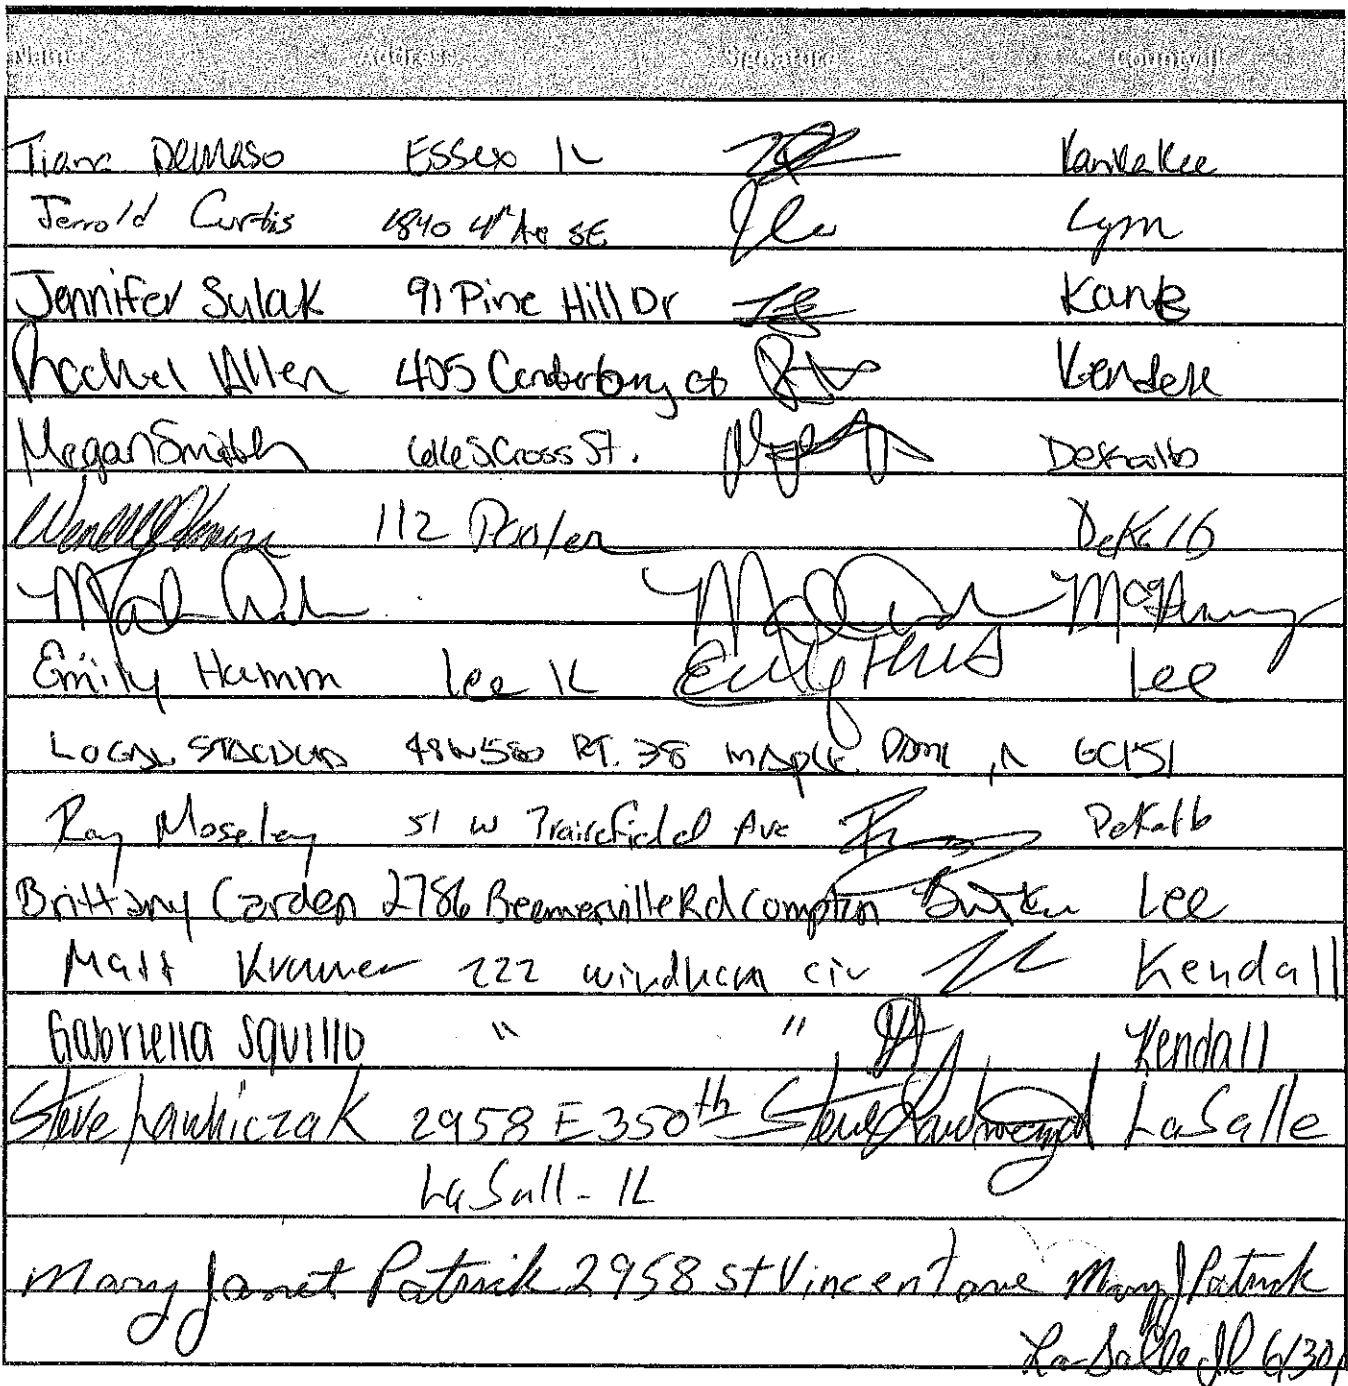 Name Address Signature County/IL
Tiana DeMaso Essex IL Kankakee
Jerrold Curtis 1840 4th Ave SE Lynn
Jennifer Sulak 91 Pine Hill Dr Kane
Rachel Allen 405 Canterbury ct Kendall
Megan Smith S Cross St. Dekalb
112 DeKalb
McHenry
Emily Hamm Lee IL Lee
48W580 RT. 38 Maple Park, IL 60151
Ray Moseley 51 W Prairiefield Ave DeKalb
Brittany Carden 2786 Beemerville Rd Compton Lee
Matt Kramer 222 windham cir Kendall
Gabriella Squillo " " Kendall
Steve 2958 E 350th Steve LaSalle
LaSall- IL
Mary Janet Patrick 2958 St Vincent ave Mary J Patrick
La Salle Il 61301